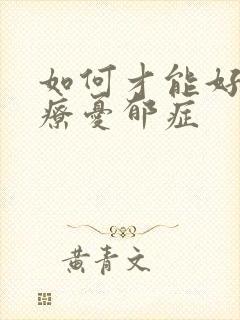 如何才能好
療憂郁症
黄青文